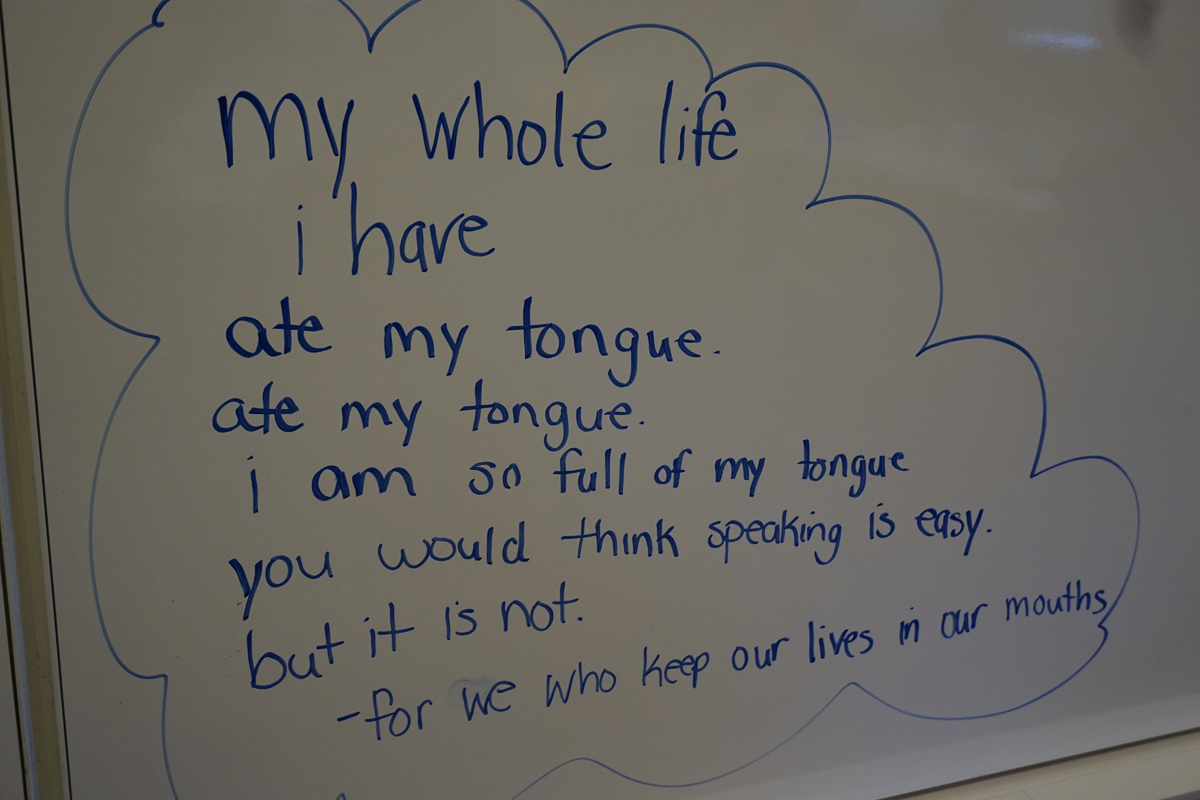 my whole life
i have
ate my tongue.
ate my tongue.
i am so full of my tongue
you would think speaking is easy.
but it is not.
-for we who keep our lives in our mouths